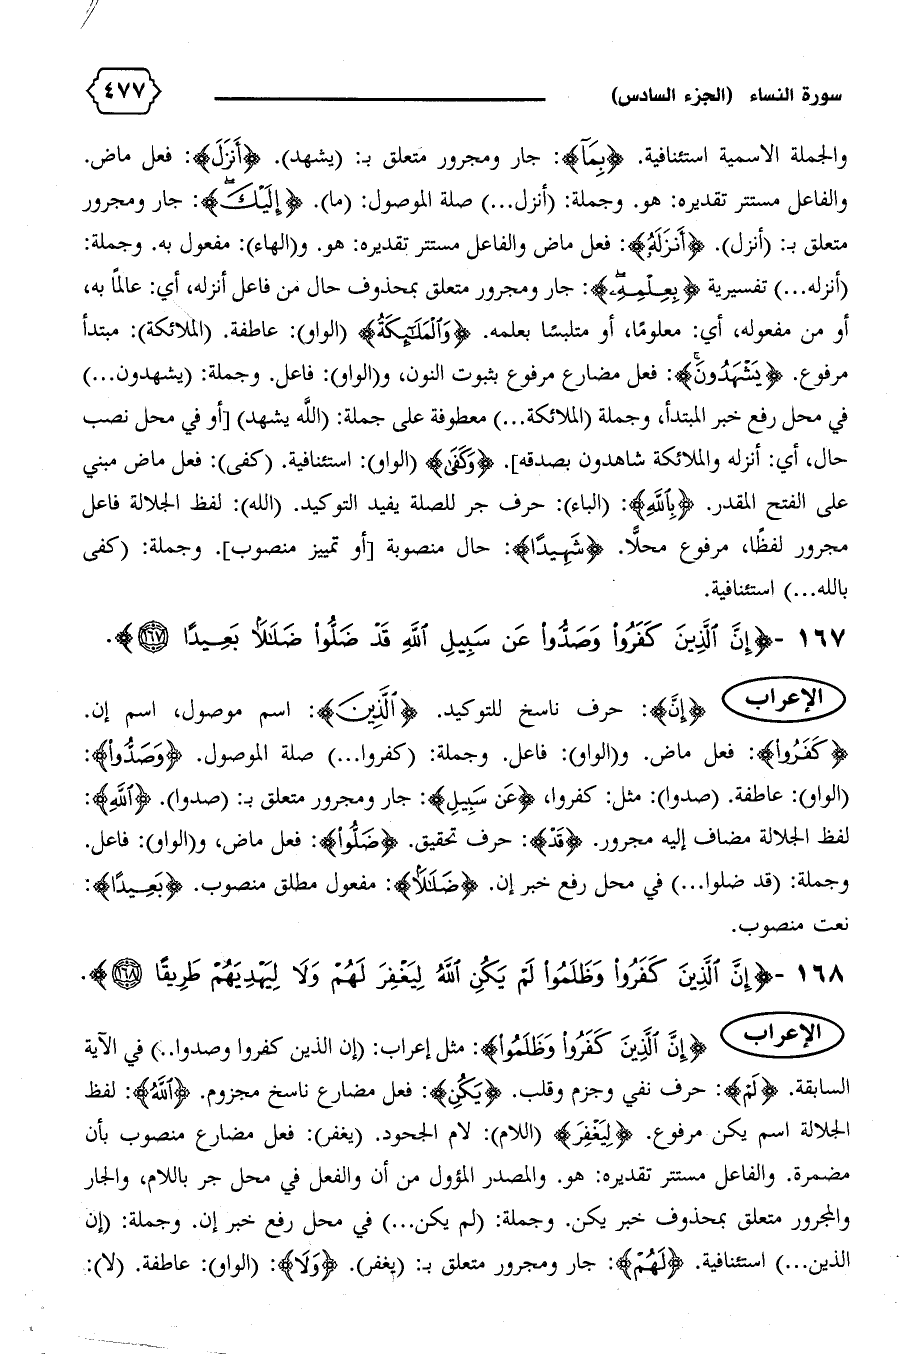 سورة النساء (الجزء السادس) ٤٧٧
والجملة الاسمية استئنافية. ﴿بِمَآ﴾: جار ومجرور متعلق بـ: (يشهد). ﴿أَنزَلَ﴾: فعل ماض.
والفاعل مستتر تقديره: هو. وجملة: (أنزل...) صلة الموصول: (ما). ﴿إِلَيْكَۖ﴾: جار ومجرور
متعلق بـ: (أنزل). ﴿أَنزَلَهُۥ﴾: فعل ماض والفاعل مستتر تقديره: هو. و(الهاء): مفعول به. وجملة:
(أنزله...) تفسيرية ﴿بِعِلْمِهِۦۖ﴾: جار ومجرور متعلق بمحذوف حال من فاعل أنزله، أي: عالمًا به،
أو من مفعوله، أي: معلومًا، أو متلبسًا بعلمه. ﴿وَٱلْمَلَٰٓئِكَةُ﴾ (الواو): عاطفة. (الملائكة): مبتدأ
مرفوع. ﴿يَشْهَدُونَۚ﴾: فعل مضارع مرفوع بثبوت النون، و(الواو): فاعل. وجملة: (يشهدون...)
في محل رفع خبر المبتدأ، وجملة (الملائكة...) معطوفة على جملة: (اللَّه يشهد) [أو في محل نصب
حال، أي: أنزله والملائكة شاهدون بصدقه]. ﴿وَكَفَىٰ﴾ (الواو): استئنافية. (كفى): فعل ماض مبني
على الفتح المقدر. ﴿بِٱللَّهِ﴾: (الباء): حرف جر للصلة يفيد التوكيد. (الله): لفظ الجلالة فاعل
مجرور لفظًا، مرفوع محلًّا. ﴿شَهِيدًا﴾: حال منصوبة [أو تمييز منصوب]. وجملة: (كفى
بالله...) استئنافية.
١٦٧ - ﴿إِنَّ ٱلَّذِينَ كَفَرُواْ وَصَدُّواْ عَن سَبِيلِ ٱللَّهِ قَدْ ضَلُّواْ ضَلَٰلًۢا بَعِيدًا ۝١٦٧﴾.
الإعراب ﴿إِنَّ﴾: حرف ناسخ للتوكيد. ﴿ٱلَّذِينَ﴾: اسم موصول، اسم إن.
﴿كَفَرُواْ﴾: فعل ماض. و(الواو): فاعل. وجملة: (كفروا...) صلة الموصول. ﴿وَصَدُّواْ﴾:
(الواو): عاطفة. (صدوا): مثل: كفروا، ﴿عَن سَبِيلِ﴾: جار ومجرور متعلق بـ: (صدوا). ﴿ٱللَّهِ﴾:
لفظ الجلالة مضاف إليه مجرور. ﴿قَدْ﴾: حرف تحقيق. ﴿ضَلُّواْ﴾: فعل ماض، و(الواو): فاعل.
وجملة: (قد ضلوا...) في محل رفع خبر إن. ﴿ضَلَٰلًۢا﴾: مفعول مطلق منصوب. ﴿بَعِيدًا﴾:
نعت منصوب.
١٦٨ - ﴿إِنَّ ٱلَّذِينَ كَفَرُواْ وَظَلَمُواْ لَمْ يَكُنِ ٱللَّهُ لِيَغْفِرَ لَهُمْ وَلَا لِيَهْدِيَهُمْ طَرِيقًا ۝١٦٨﴾.
الإعراب ﴿إِنَّ ٱلَّذِينَ كَفَرُواْ وَظَلَمُواْ﴾: مثل إعراب: (إن الذين كفروا وصدوا..) في الآية
السابقة. ﴿لَمْ﴾: حرف نفي وجزم وقلب. ﴿يَكُنِ﴾: فعل مضارع ناسخ مجزوم. ﴿ٱللَّهُ﴾: لفظ
الجلالة اسم يكن مرفوع. ﴿لِيَغْفِرَ﴾ (اللام): لام الجحود. (يغفر): فعل مضارع منصوب بأن
مضمرة. والفاعل مستتر تقديره: هو. والمصدر المؤول من أن والفعل في محل جر باللام، والجار
والمجرور متعلق بمحذوف خبر يكن. وجملة: (لم يكن...) في محل رفع خبر إن. وجملة: (إن
الذين...) استئنافية. ﴿لَهُمْ﴾: جار ومجرور متعلق بـ: (يغفر). ﴿وَلَا﴾: (الواو): عاطفة. (لا):